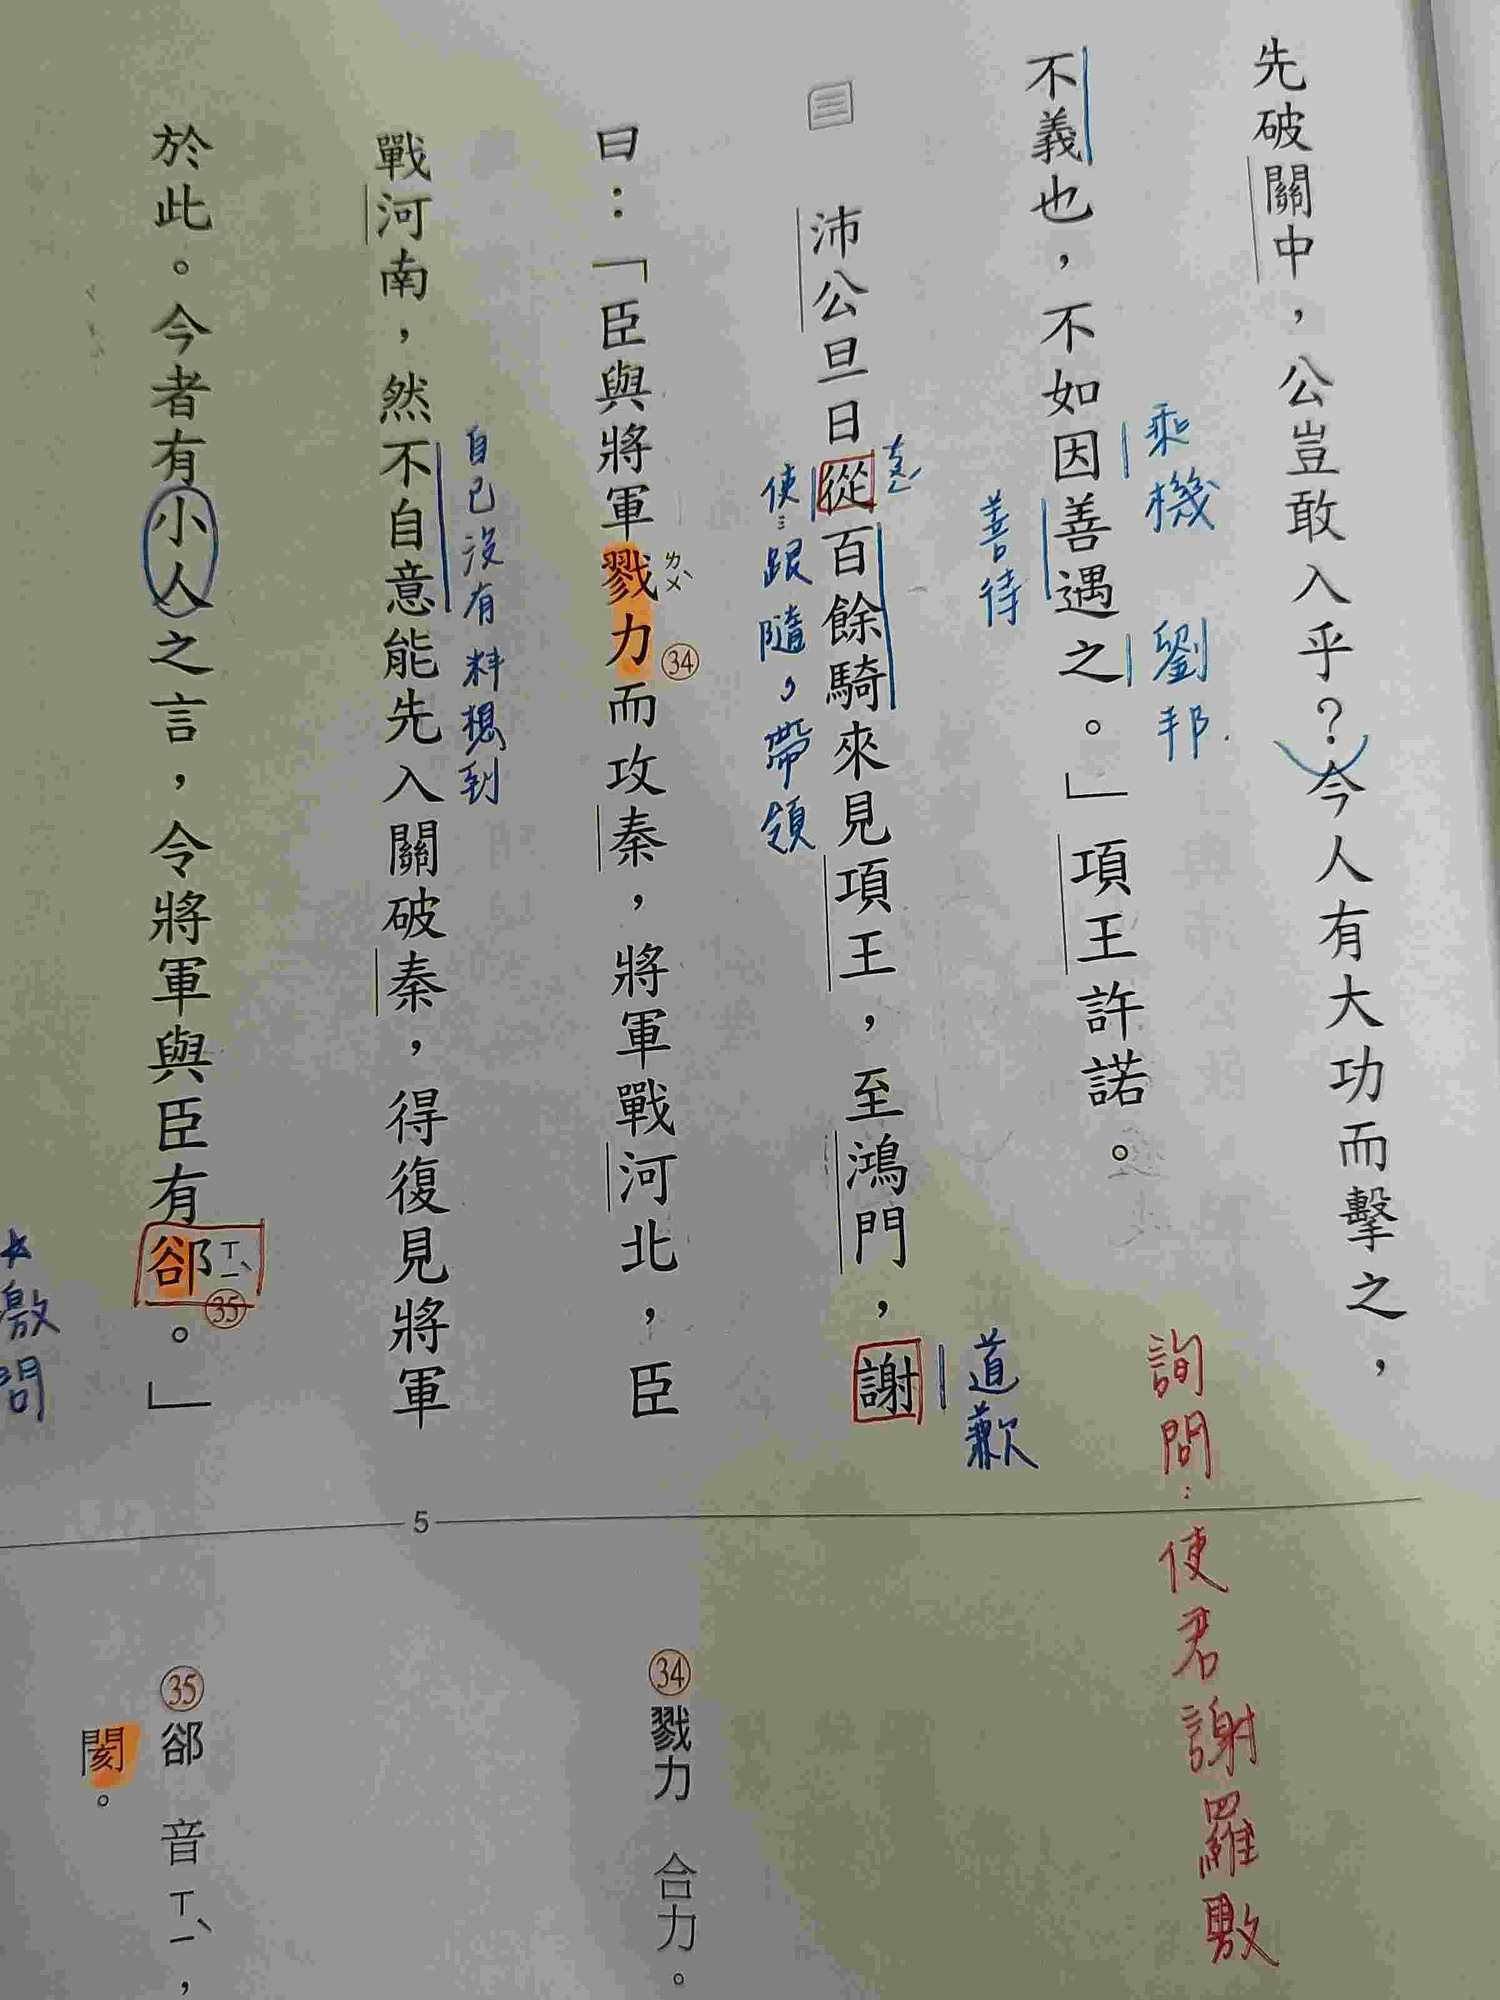 先破關中，公豈敢入乎？今人有大功而擊之，
乘機
劉邦
詢問：使君謝羅敷
不義也，不如因善遇之。」項王許諾。
善待
道歉
沛公旦日從百餘騎來見項王，至鴻門，謝
使…跟隨，帶領
曰：「臣與將軍戮ㄌㄨˋ力㉞而攻秦，將軍戰河北，臣
自己沒有料想到
戰河南，然不自意能先入關破秦，得復見將軍
於此。今者有小人之言，令將軍與臣有郤ㄒㄧˋ㉟。」
★激問
5
㉞戮力　合力。
㉟郤　音ㄒㄧˋ，
閡。